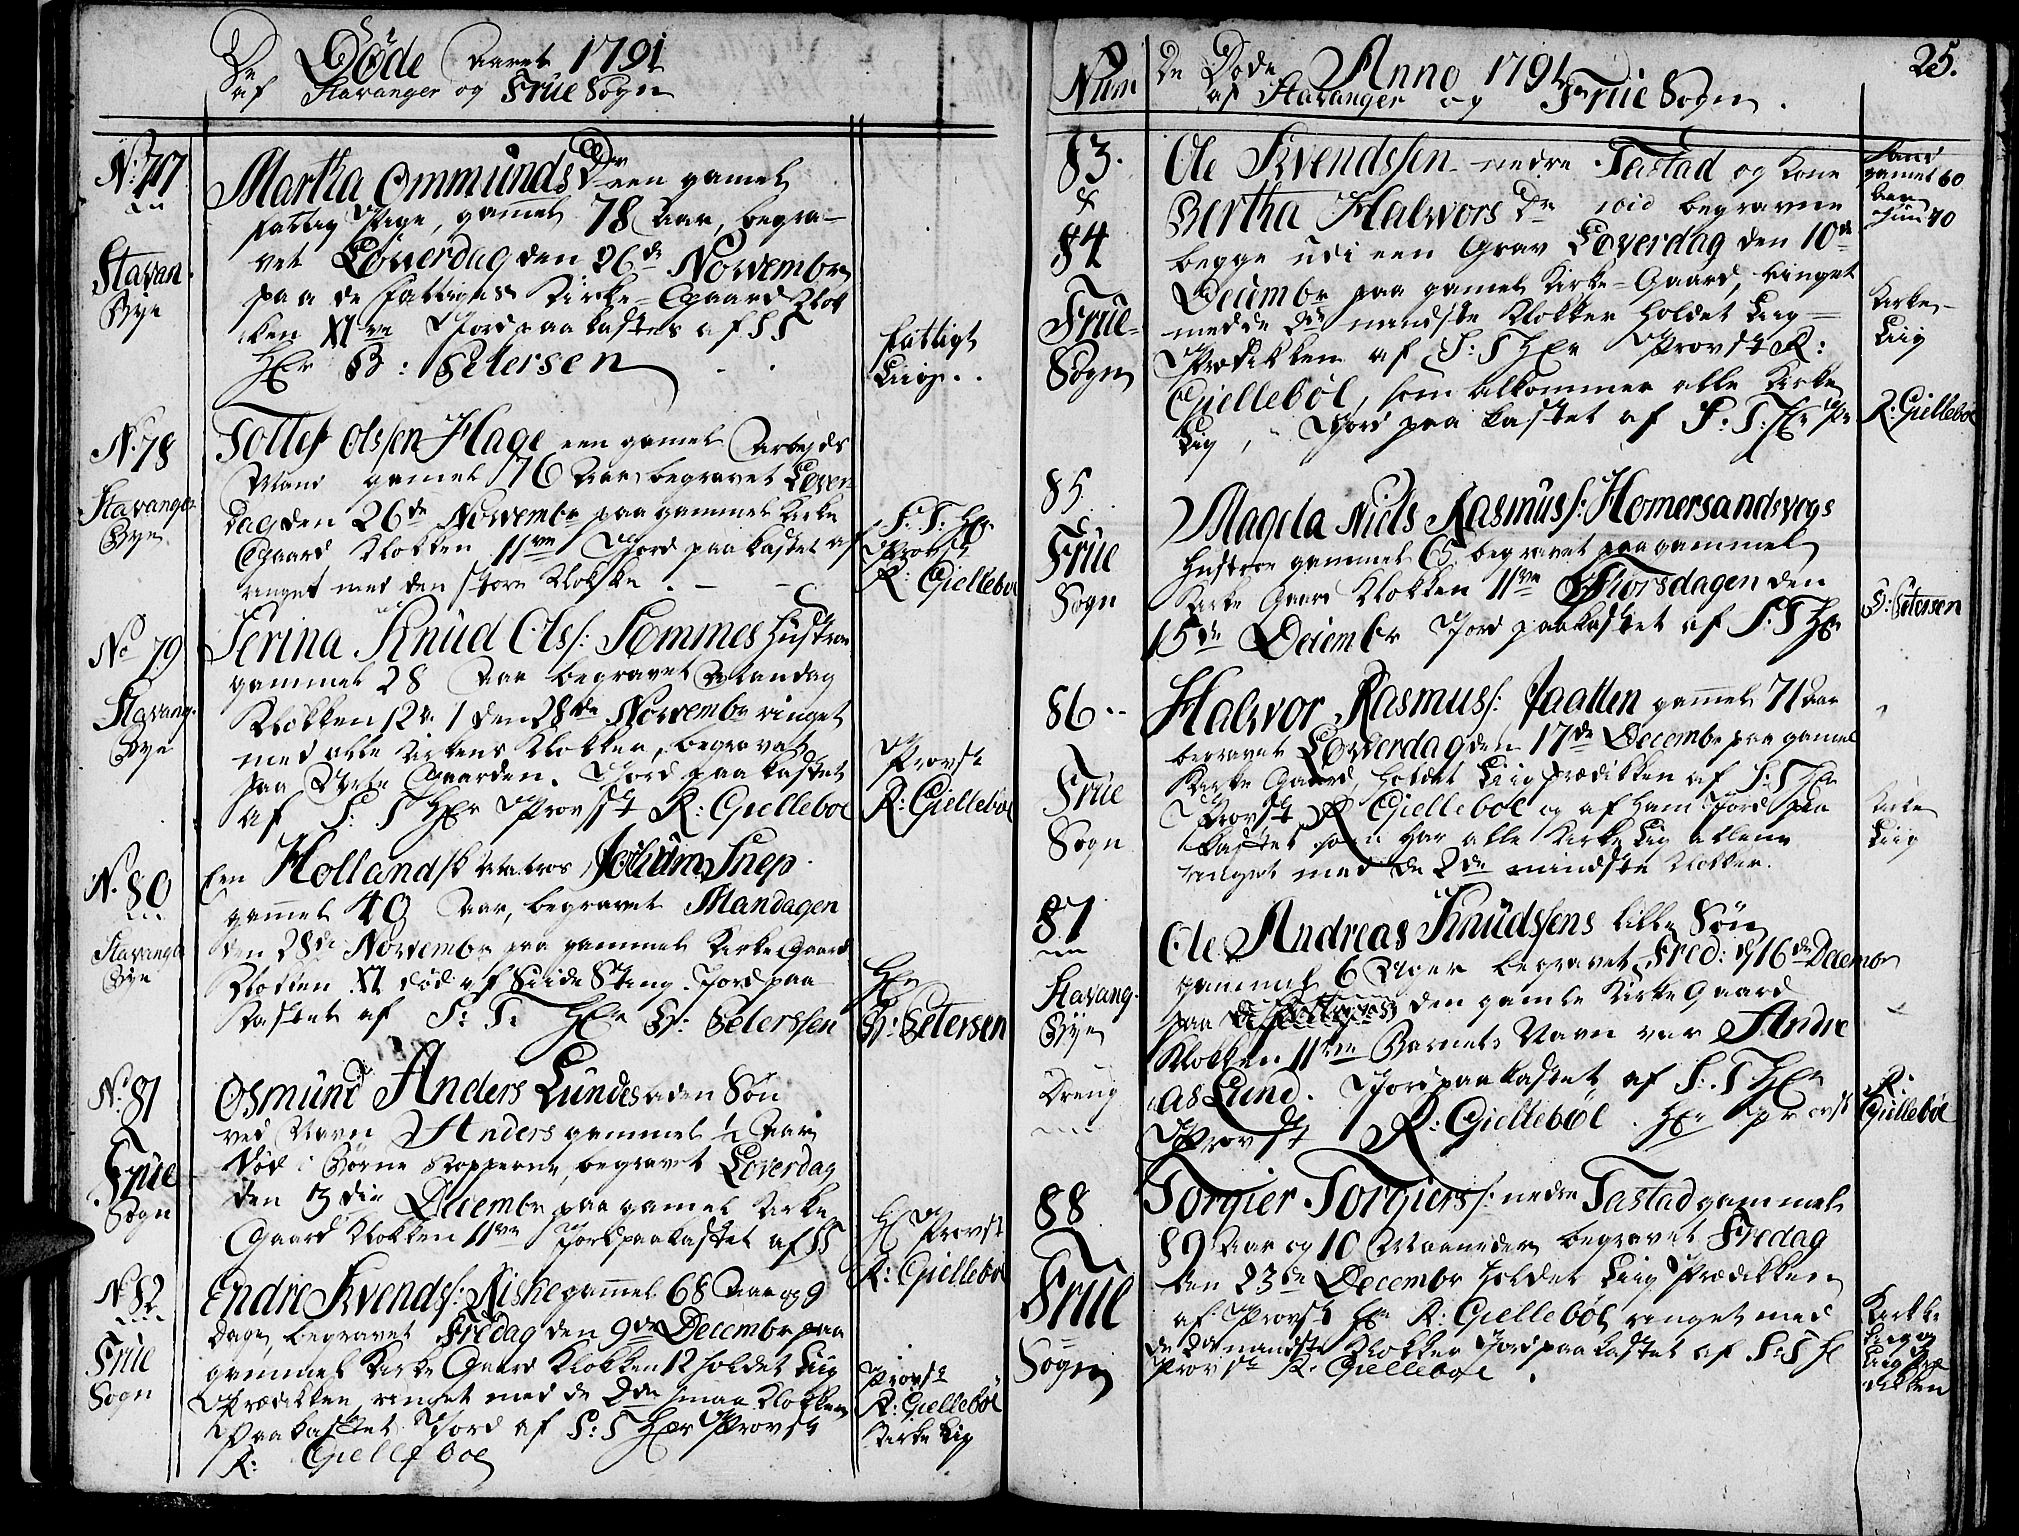 De Døde Aaret 1791
af Stavanger og Frue Sogn
N: 77
Stavan
Bye
Martha Ommunds Dr een gamel
fattig Pige, gamel 78 Aar, begra-
vet Löverdag den 26de Novembr
paa de Fattiges Kirke-Gaard Klok
ken XIve Jord paa kastes af S S
Hr B: Petersen
fattigt
Liig
N: 78
Stavanger
Bye
Tollef Olssen Hage een gamel Arbejds
Mand gamel 76 Aar begravet Löver
dag den 26de Novembr paa gammel Kirke
Gaard Klokken 11ve Jord paa kastet af
ringet med den store Klokke
S: T: Hr
Provst
R: Gielleboel
No 79
Stavang.
Bye
Serina Knud Olss: Sømmes Hustroe
gammel 28 Aar begravet Mandag
Klokken 12 a 1 den 28de Novembr ringet
med alle Kirkens Klokker, begravet
paa Urte Gaarden. Jord paa kastet
af S: T Hr Provst R: Gielleboel
Provst
R: Gielleboel
N. 80
Stavanger
Bye
Een Hollandsk Matros Jochum Snep
gamel 40 Aar, begravet Mandagen
den 28de Novembr paa gammel Kirke Gaard
Klokken XI død af Siide Sting. Jord paa
kastet af S: T: Hr B: Peterssen
Hr
B: Petersen
N: 81
Frue
Sogn
Osmund Anders Lundes aden Søn
ved Navn Anders gammel ½ Aar
død i Børne Kopperne, begravet Löverdag
den 3die Decembr paa gamel Kirke
Gaard Klokken 11ve Jord paa kastet af SS
H Provst
R: Gielleboel
N. 82
Frue
Sogn
Endre Svends: Riske gamel 68 Aar og 9
Dage, begravet Fredag den 9de Decembr paa
gammel Kirke Gaard Klokken 12 holdet Liig
Prædikken, ringet med de 2de smaa Klokker
Paa kastet Jord af S: T Hr Provst
R: Gielleboel
Provst
R: Gielleboel
Kirke Liig
Num
De Døde Anno 1791
af Stavanger og Frue Sogn.
25.
83.
&
84
Frue-
Sogn
Ole Svendssen nedre Tastad og Kone
Bertha Halvors Dr begravne
begge udi een Grav Löverdag den 10de
Decembr paa gamel Kirke-Gaard, ringet
med de 2de mindste Klokker holdet Liig-
Prædikken af S: T Hr Provst R:
Gielleböl, som tilkommer alle Kirke
Liig, Jord paa kastet af S: T: Hr Pr
gamel 60
hun 70
Kirke-
Liig
R: Gielleboel
85
Frue
Sogn
Magela Niels Rasmuss: Homersandsvogs
Hustroe gammel 65 begravet paa gammel
Kirke Gaard Klokken 11ve Thorsdagen den
15de Decembr Jord paa kastet af S: T Hr
B: Petersen
86
Frue
Sogn
Halvor Rasmuss: Jaatten gamel 71 Aar
begravet Löverdag den 17de Decembr paa gamel
Kirke Gaard, holdet Liigprædikken af S: T Hr
Provst R Gielleboel og af ham Jord paa
kastet som har alle Kirke Liig allene
ringet med de 2de mindste Klokker.
Kirke
Liig
87
Stavang.
Bye
Dreng
Ole Andreas Knudssens lille Søn
gammel 6 Uger begravet Fred: d 16de Decembr
paa den gamle Kirke Gaard
Klokken 11ve Barnets Navn var Andre
as Lund. Jord paa kastet af S: T Hr
Provst R: Gielleböl. Hr Provst
R:
Gielleböl
88
Frue
Sogn
Torgier Torgierss: nedre Tastad gammel
89 Aar og 10 Maaneder begravet Fredag
den 23de Decembr holdet Liig Prædikken
af Provst Hr R: Gielleböl ringet med
de 2de mindste Klokker Jord paa kastet af S: T H
Provst R: Gielleboel.
Kirke
Liig og
Liig Præ
dikken